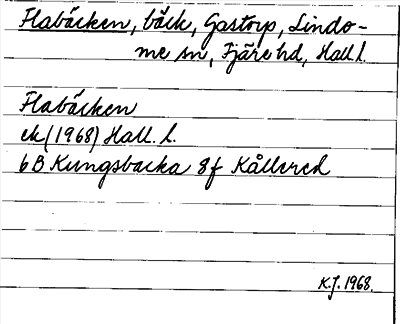 Flabäcken, bäck, Gastorp, Lindo-
me sn, Fjäre hd, Hall l.
Flabäcken
ek (1968) Hall. l.
6B Kungsbacka 8f Kållered
K.J. 1968.